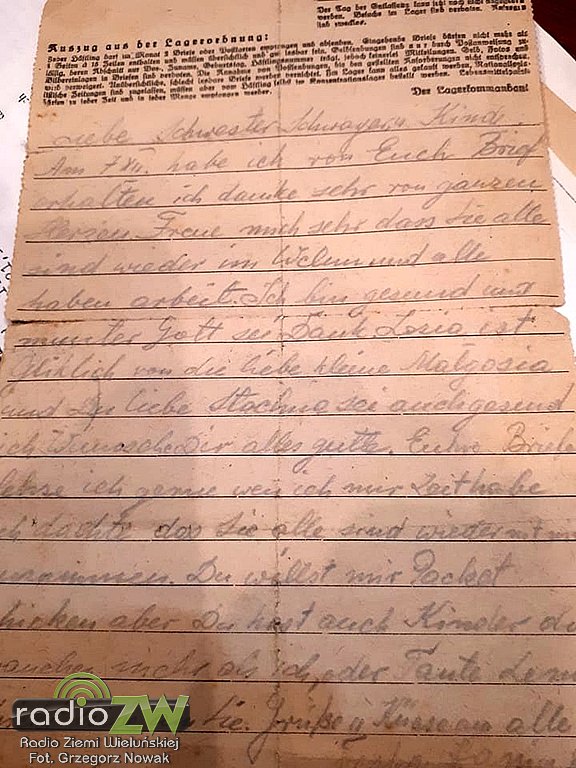 Der Tag der Entlassung kann jetzt noch nicht angegeben
werden. Besuche im Lager sind verboten. Anfragen
sind zwecklos.
Auszug aus der Lagerordnung:
Jeder Häftling darf im Monat 2 Briefe oder Postkarten empfangen und absenden. Eingehende Briefe dürfen nicht mehr als
4 Seiten à 15 Zeilen enthalten und müssen übersichtlich und gut lesbar sein. Geldsendungen sind nur durch Postanweisung zu-
lässig, deren Abschnitt nur Vor-, Zuname, Geburtstag, Häftlingsnummer trägt, jedoch keinerlei Mitteilungen. Geld, Fotos und
Bildereinlagen in Briefen sind verboten. Die Annahme von Postsendungen, die den gestellten Anforderungen nicht entsprechen,
wird verweigert. Unübersichtliche, schlecht lesbare Briefe werden vernichtet. Im Lager kann alles gekauft werden. Nationalsozia-
listische Zeitungen sind zugelassen, müssen aber vom Häftling selbst im Konzentrationslager bestellt werden. Lebensmittelpakete
dürfen zu jeder Zeit und in jeder Menge empfangen werden.
Der Lagerkommandant
Liebe Schwester Schwager u. Kinder.
Am 7 XII. habe ich von Euch Brief
erhalten ich danke sehr von ganzen
Herzen. Freue mich sehr dass Sie alle
sind wieder im Welun und alle
haben arbeit. Ich bin gesund und
munter Gott sei Dank Losia ist
Gliklich von die liebe kleine Małgosia
und Du liebe Stachna sei auch gesund
ich Wunsche Dir alles gutte. Eure Briefe
lehse ich gerne wen ich nur Zeit habe
ich dachte das Sie alle sind wieder mit
zusammen. Du willst mir Packet
schicken aber Du hast auch Kinder die
brauchen mehr als ich, oder Tante
Sie. Grüße u Küssen alle
radioZW
Radio Ziemi Wieluńskiej
Fot. Grzegorz Nowak